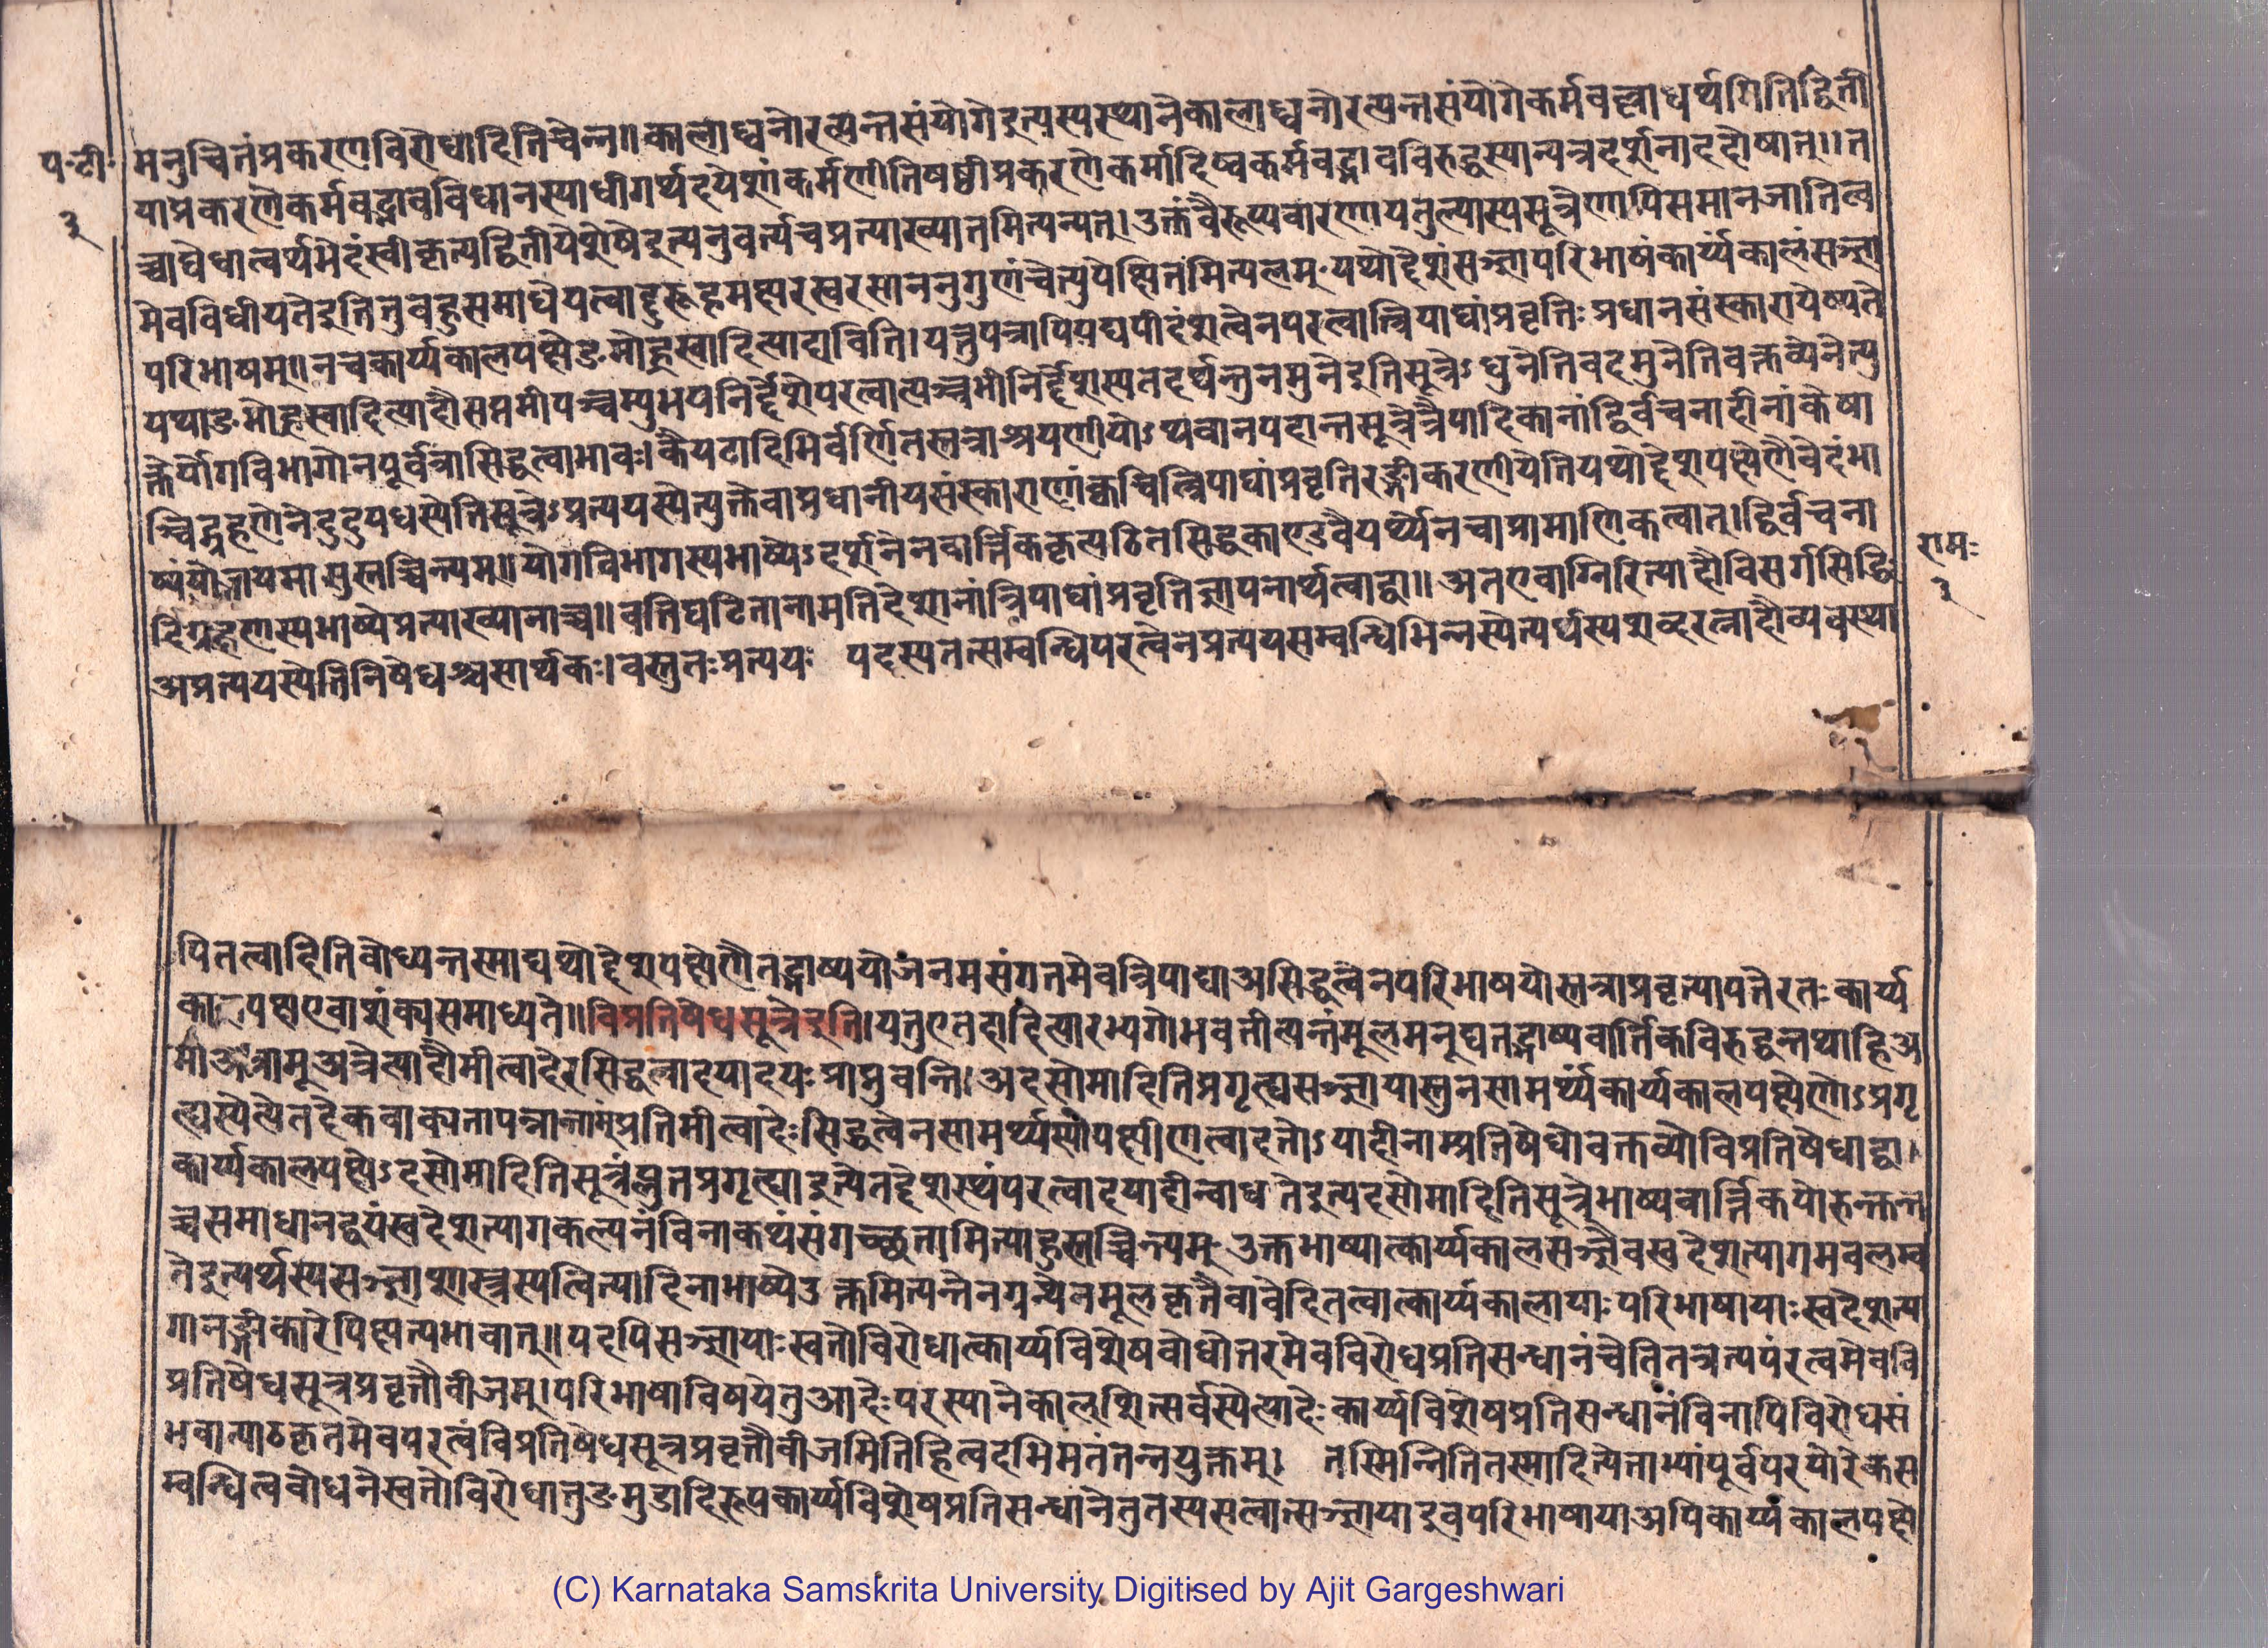 प॰टी॰
३
मनुचितंप्रकरणविरोधादितिचेन्न॥कालाध्वनोरत्यन्तसंयोगेइत्यस्यस्थानेकालाध्वनोरत्यन्तसंयोगेकर्मवल्लाद्यर्थगितिद्विती
याप्रकरणेकर्मवद्भावविधानस्याधीगर्थदयेशांकर्मणीतिषष्ठीप्रकरणेकर्मादिष्वकर्मवद्भावविरुद्धस्यान्यत्रदर्शनाददोषात्॥त
च्चाघेधात्वर्थमेदंस्वीकृत्यद्वितीयेशेषैइत्यनुवर्त्यचप्रत्याख्यातमित्यन्यत्।उक्तंवैरूप्यवारणायतुल्यास्यसूत्रेणापिसमानजातित्व
मेवविधीयतेइतितुबहुसमाधेयत्वाद्दुरूहमक्षरस्वरसाननुगुणंचेत्युपेक्षितंमित्यलम्॰यथोद्देशंसञ्ज्ञापरिभाषंकार्य्यकालंसञ्ज्ञा
परिभाषम्॥नचकार्य्यकालपक्षेङमोह्रस्वादित्यादाविति।यत्तुपत्रापियद्यपीदंशत्वेनपरत्वात्त्रिपाद्यांप्रवृत्तिःप्रधानसंस्कारायेष्यते
यथाङमोह्रस्वादित्यादौसप्तमीपञ्चम्युभयनिर्द्देशेपरत्वात्पञ्चमीनिर्द्देशस्यतदर्थन्तुनमुनेइतिसूत्रेऽघुनेतिवदमुनेतिवक्तव्येनेत्यु
क्तेर्योगविभागेनपूर्वत्रासिद्धत्वाभावः।कैयटादिभिर्वर्णितस्तत्राश्रयणीयोऽथवानपदान्तसूत्रेत्रैपादिकानांद्विर्वचनादीनांकेषा
ञ्चिद्ग्रहणेनेदुदुपधस्येतिसूत्रेऽप्रत्ययस्येत्युक्तेवाप्रधानीयसंस्काराणांक्वचित्त्रिपाद्यांप्रवृत्तिरङ्गीकरणीयेतियथोद्देशपक्षेणैवेदंभा
ष्यंयोजयमासुस्तच्चिन्त्यम्॥योगविभागस्यभाष्येऽदर्शनेनवार्त्तिककृत्पठितसिद्धकाण्डवैयर्थ्येनचाप्रामाणिकत्वात्।द्विर्वचना
दिग्रहणस्यभाष्येप्रत्याख्यानाच्च॥वतिघटितानामतिदेशानांत्रिपाद्यांप्रवृत्तिज्ञापनार्थत्वाद्वा॥अतएवाग्निरित्यादौविसर्गसिद्धिः
अप्रत्ययस्येतिनिषेधश्चसार्थकः।वस्तुतःप्रत्ययः पदस्यतत्सम्बन्धिपरत्वेनप्रत्ययसम्बन्धिभिन्नस्येत्यर्थस्यशब्दरत्नादौव्यवस्था
रामः
३
पितत्वादितिबोध्यन्तस्माद्यथोद्देशपक्षेणैतद्भाष्ययोजनमसंगतमेवत्रिपाद्याअसिद्धत्वेनपरिभाषयोस्तत्राप्रवृत्यापत्तेरतःकार्य्य
कालपक्षएवाशंक्यसमाध्यते॥विप्रतिषेधसूत्रेइति।यत्तुएतदादित्यारभ्यगोभवतीत्यन्तंमूलमनूद्यतद्भाष्यवार्तिकविरुद्धन्तथाहिअ
मीअत्रामूअत्रेत्यादौमीत्वादेरसिद्धत्वादयादयःप्राप्नुवन्ति।अदसोमादितिप्रगृह्यसञ्ज्ञायास्तुनसामर्थ्यंकार्य्यकालपक्षेणोऽप्रगृ
ह्यस्येत्येतदेकवाक्यतापन्नान्ताम्प्रतिमीत्वादेःसिद्धत्वेनसामर्थ्यस्योपक्षीणत्वादतोऽयादीनाम्प्रतिषेधोवक्तव्योविप्रतिषेधाद्वा।
कार्य्यकालपक्षेऽदसोमादितिसूत्रंप्लुतप्रगृह्याइत्येतद्देशस्थंपरत्वादयादीन्बाधतेइत्यदसोमादितिसूत्रेभाष्यवार्त्तिकयोरुक्तन्त
च्चसमाधानद्वयंस्वदेशत्यागकल्पनंविनाकथंसंगच्छतामित्याहुस्तच्चिन्त्यम्॰उक्तभाष्यात्कार्य्यकालसञ्ज्ञैवस्वदेशत्यागमवलम्ब
तेइत्यर्थस्यसञ्ज्ञाशास्त्रस्यत्वित्यादिनाभाष्येउक्तमित्यन्तेनग्रन्थेनमूलकृतैवावेदितत्वात्कार्य्यकालायाःपरिभाषायाःस्वदेशत्या
गानङ्गीकारेपिक्षत्यभावात्॥यदपिसञ्ज्ञायाःस्वतोविरोधात्कार्य्यविशेषबोधोत्तरमेवविरोधप्रतिसन्धानंचेतितत्रत्यपंरत्वमेववि
प्रतिषेधसूत्रप्रवृत्तौबीजम्।परिभाषाविषयेतुआदेःपरस्यानेकाल्शित्सर्वस्येत्यादेःकार्य्यविशेषप्रतिसन्धानंविनापिविरोधसं
भवात्पाठकृतमेवपरत्वंविप्रतिषेधसूत्रप्रवृत्तौबीजमितिहित्वदभिमतंतन्नयुक्तम्। तस्मिन्नितितस्मादित्येताभ्यांपूर्वपरयोरेकस
म्बन्धित्वबोधनेस्वतोविरोधात्तुङमुडादिरूपकार्य्यविशेषप्रतिसन्धानेतुतस्यसत्वात्सञ्ज्ञायाइवपरिभाषायाअपिकार्य्यकालपक्षे
(C) Karnataka Samskrita University Digitised by Ajit Gargeshwari